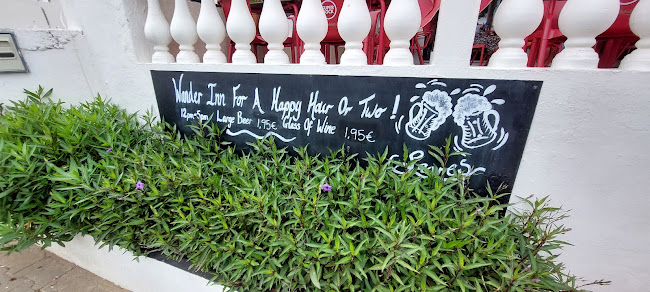 Wonder Inn For A Happy Hour Or Two!
12pm-5pm Large Beer 1.95€ Glass Of Wine 1.95€